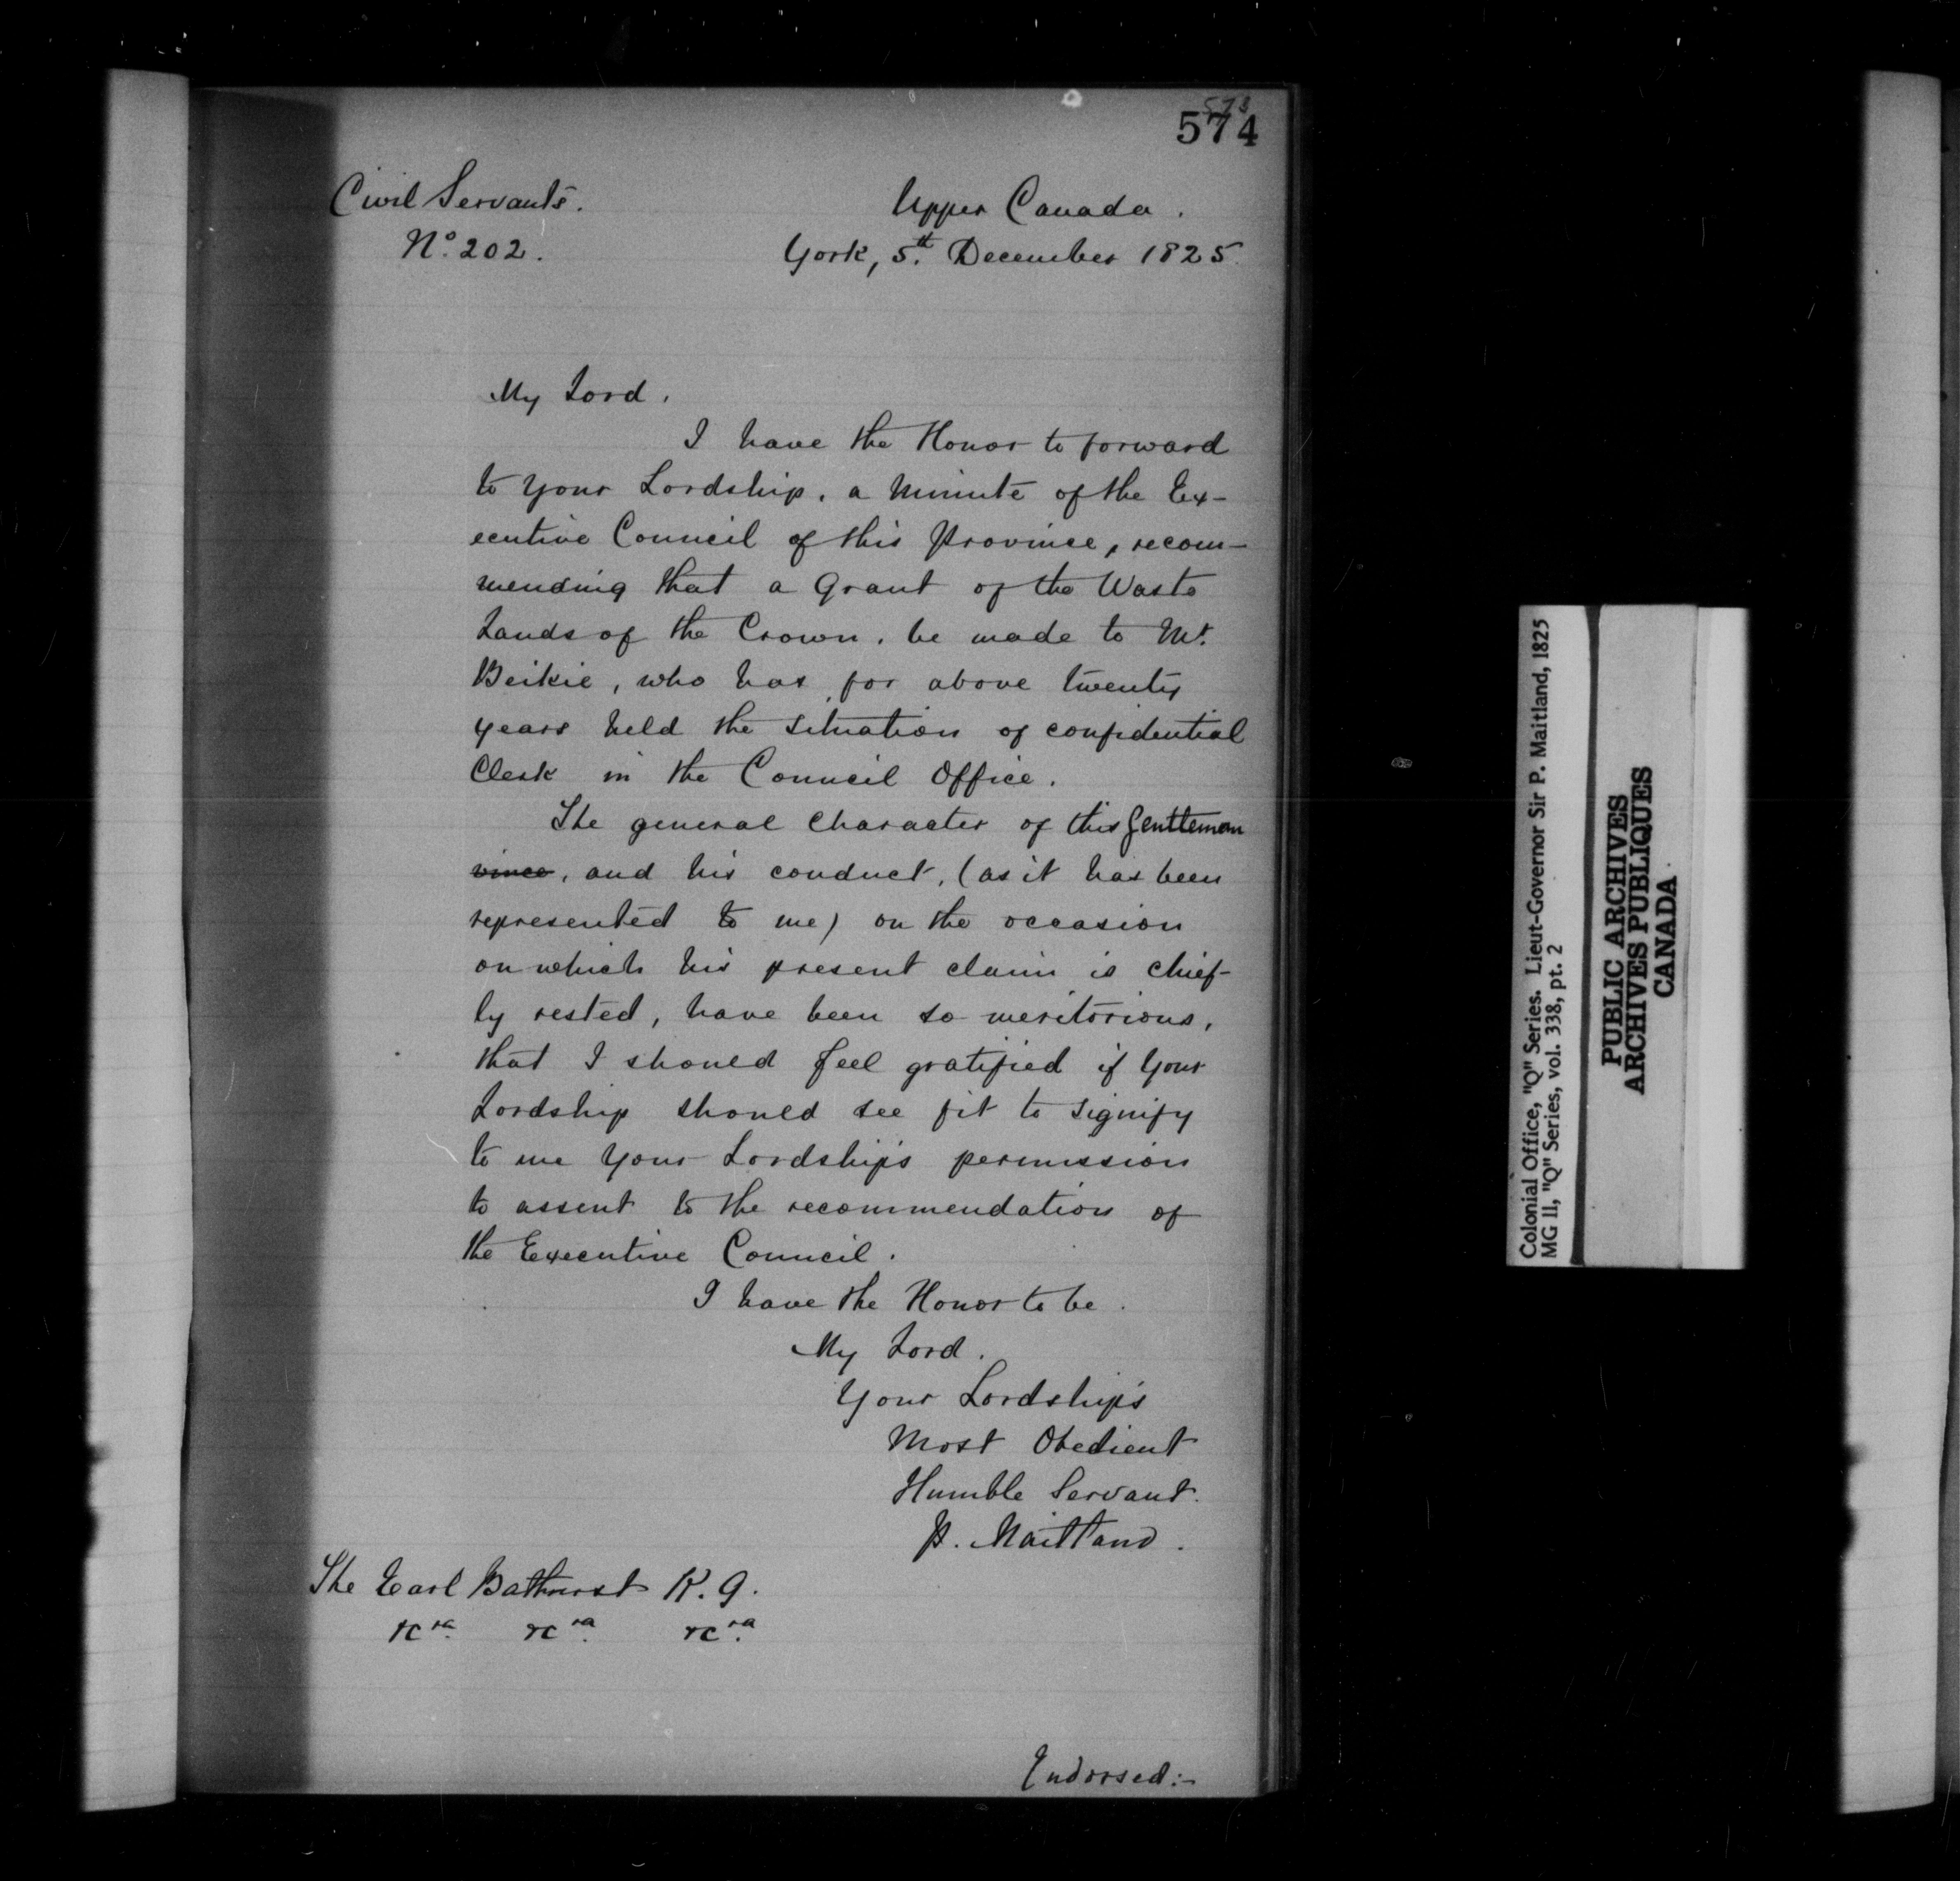 573
574
Civil Servants.
Upper Canada.
No. 202.
York, 5th. December 1825.
My Lord.
I have the Honor to forward
to your Lordship, a Minute of the Ex-
ecutive Council of this Province, recom-
mending that a Grant of the Waste
Lands of the Crown, be made to Mr.
Beikie, who has, for above twenty
years held the situation of confidential
Clerk in the Council Office.
The general character of this Gentleman
vince, and his conduct, (as it has been
represented to me) on the occasion
on which his present claim is chief-
ly rested, have been so meritorious,
that I should feel gratified if Your
Lordship should see fit to signify
to me Your Lordship's permission
to assent to the recommendation of
the Executive Council.
I have the Honor to be.
My Lord.
Your Lordship's
Most Obedient
Humble Servant.
P. Maitland.
The Earl Bathurst K. G.
&cra. &cra. &cra.
Endorsed:-
Colonial Office, "Q" Series. Lieut-Governor Sir P. Maitland, 1825
MG 11, "Q" Series, vol. 338, pt. 2
PUBLIC ARCHIVES
ARCHIVES PUBLIQUES
CANADA